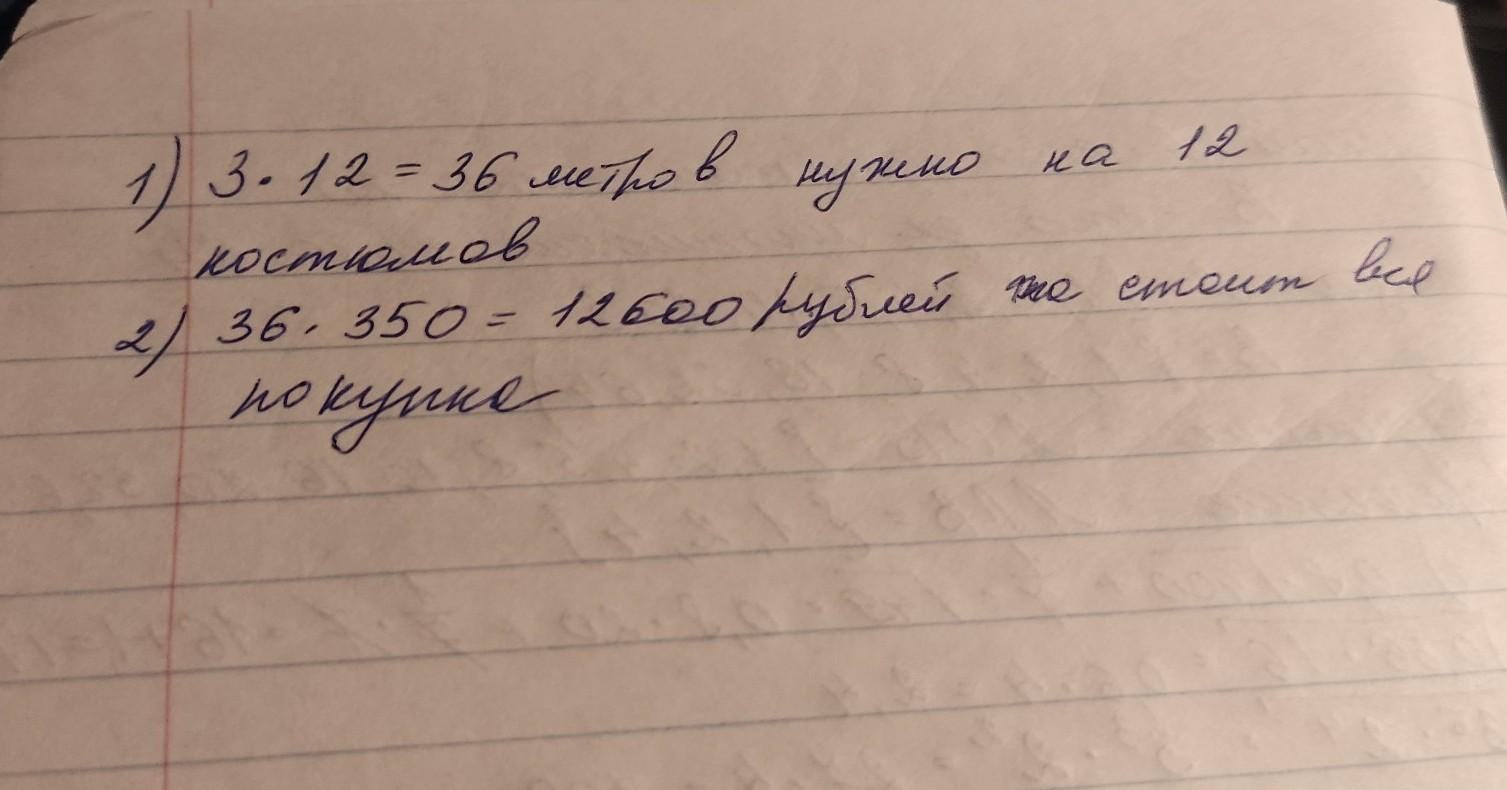 1) 3 · 12 = 36 метров нужно на 12
костюмов
2) 36 · 350 = 12600 рублей стоит вся
покупка